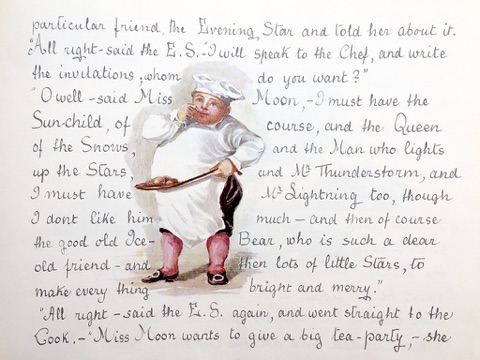 particular friend, the Evening Star and told her about it.
"All right - said the E.S. - "I will speak to the Chef, and write
the invitations; whom do you want?"
"O well - said Miss Moon, - I must have the
Sun-child, of course, and the Queen
of the Snows, and the Man who lights
up the Stars, and Mr Thunderstorm, and
I must have Mr Lightning too, though
I dont like him much - and then of course
the good old Ice- Bear, who is such a dear
old friend - and then lots of little Stars, to
make every thing bright and merry."
"All right - said the E.S. again, and went straight to the
Cook. - "Miss Moon wants to give a big tea-party, - she